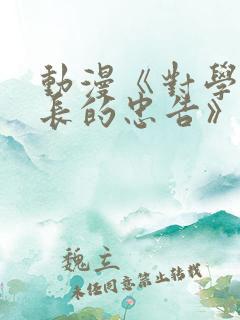 動漫《對學
長的忠告》
魏立
未任同意禁止轉載